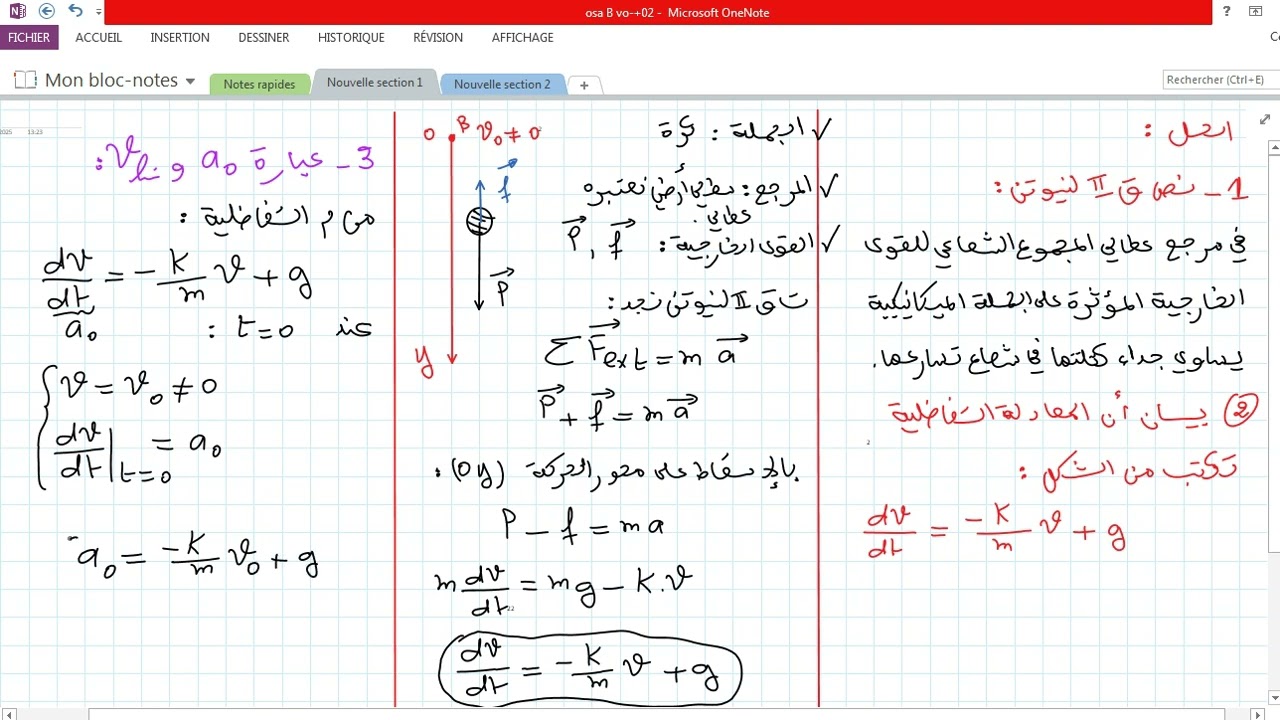 osa B vo-+02 - Microsoft OneNote
FICHIER ACCUEIL INSERTION DESSINER HISTORIQUE RÉVISION AFFICHAGE
Mon bloc-notes Notes rapides Nouvelle section 1 Nouvelle section 2 +
Rechercher (Ctrl+E)
2025 13:23
الحل :
1 - نص ق II لنيوتن :
في مرجع عطالي المجموع الشعاعي للقوى
الخارجية المؤثرة على الجملة الميكانيكية
يساوي جداء كتلتها في شعاع تسارعها.
② بيان أن المعادلة التفاضلية
تكتب من الشكل :
dv/dt = -K/m v + g
✓ الجملة : كرة
✓ المرجع : سطحي أرضي نعتبره
عطالي.
✓ القوى الخارجية : P⃗ , f⃗
ت ق II لنيوتن نجد :
Σ F⃗ext = m a⃗
P⃗ + f⃗ = m a⃗
بالإسقاط على محور الحركة (Oy) :
P - f = ma
m dv/dt = mg - K.v
dv/dt = -K/m v + g
O B v₀ ≠ 0
f⃗
P⃗
y
3 - عبارة a₀ و v :
من م التفاضلية :
dv/dt = -K/m v + g
a₀
عند t=0 :
v = v₀ ≠ 0
dv/dt|t=0 = a₀
a₀ = -K/m v₀ + g